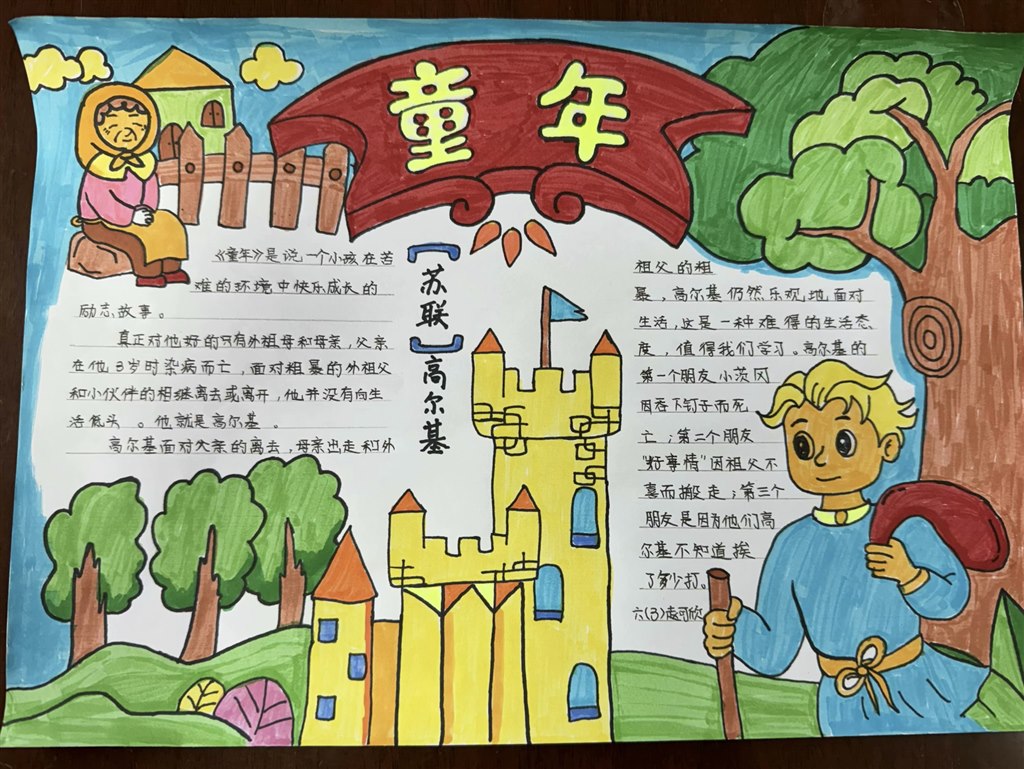 童年
[苏联]高尔基
《童年》是说一个小孩在苦
难的环境中快乐成长的
励志故事。
真正对他好的只有外祖母和母亲，父亲
在他3岁时染病而亡，面对粗暴的外祖父
和小伙伴的相继离去或离开，他并没有向生
活低头。他就是高尔基。
高尔基面对父亲的离去，母亲出走和外
祖父的粗
暴，高尔基仍然乐观地面对
生活，这是一种难得的生活态
度，值得我们学习。高尔基的
第一个朋友小茨冈
因吞下钉子而死
亡；第二个朋友
"好事情"因祖父不
喜而搬走；第三个
朋友是因为他们高
尔基不知道挨
了多少打。
六(3)